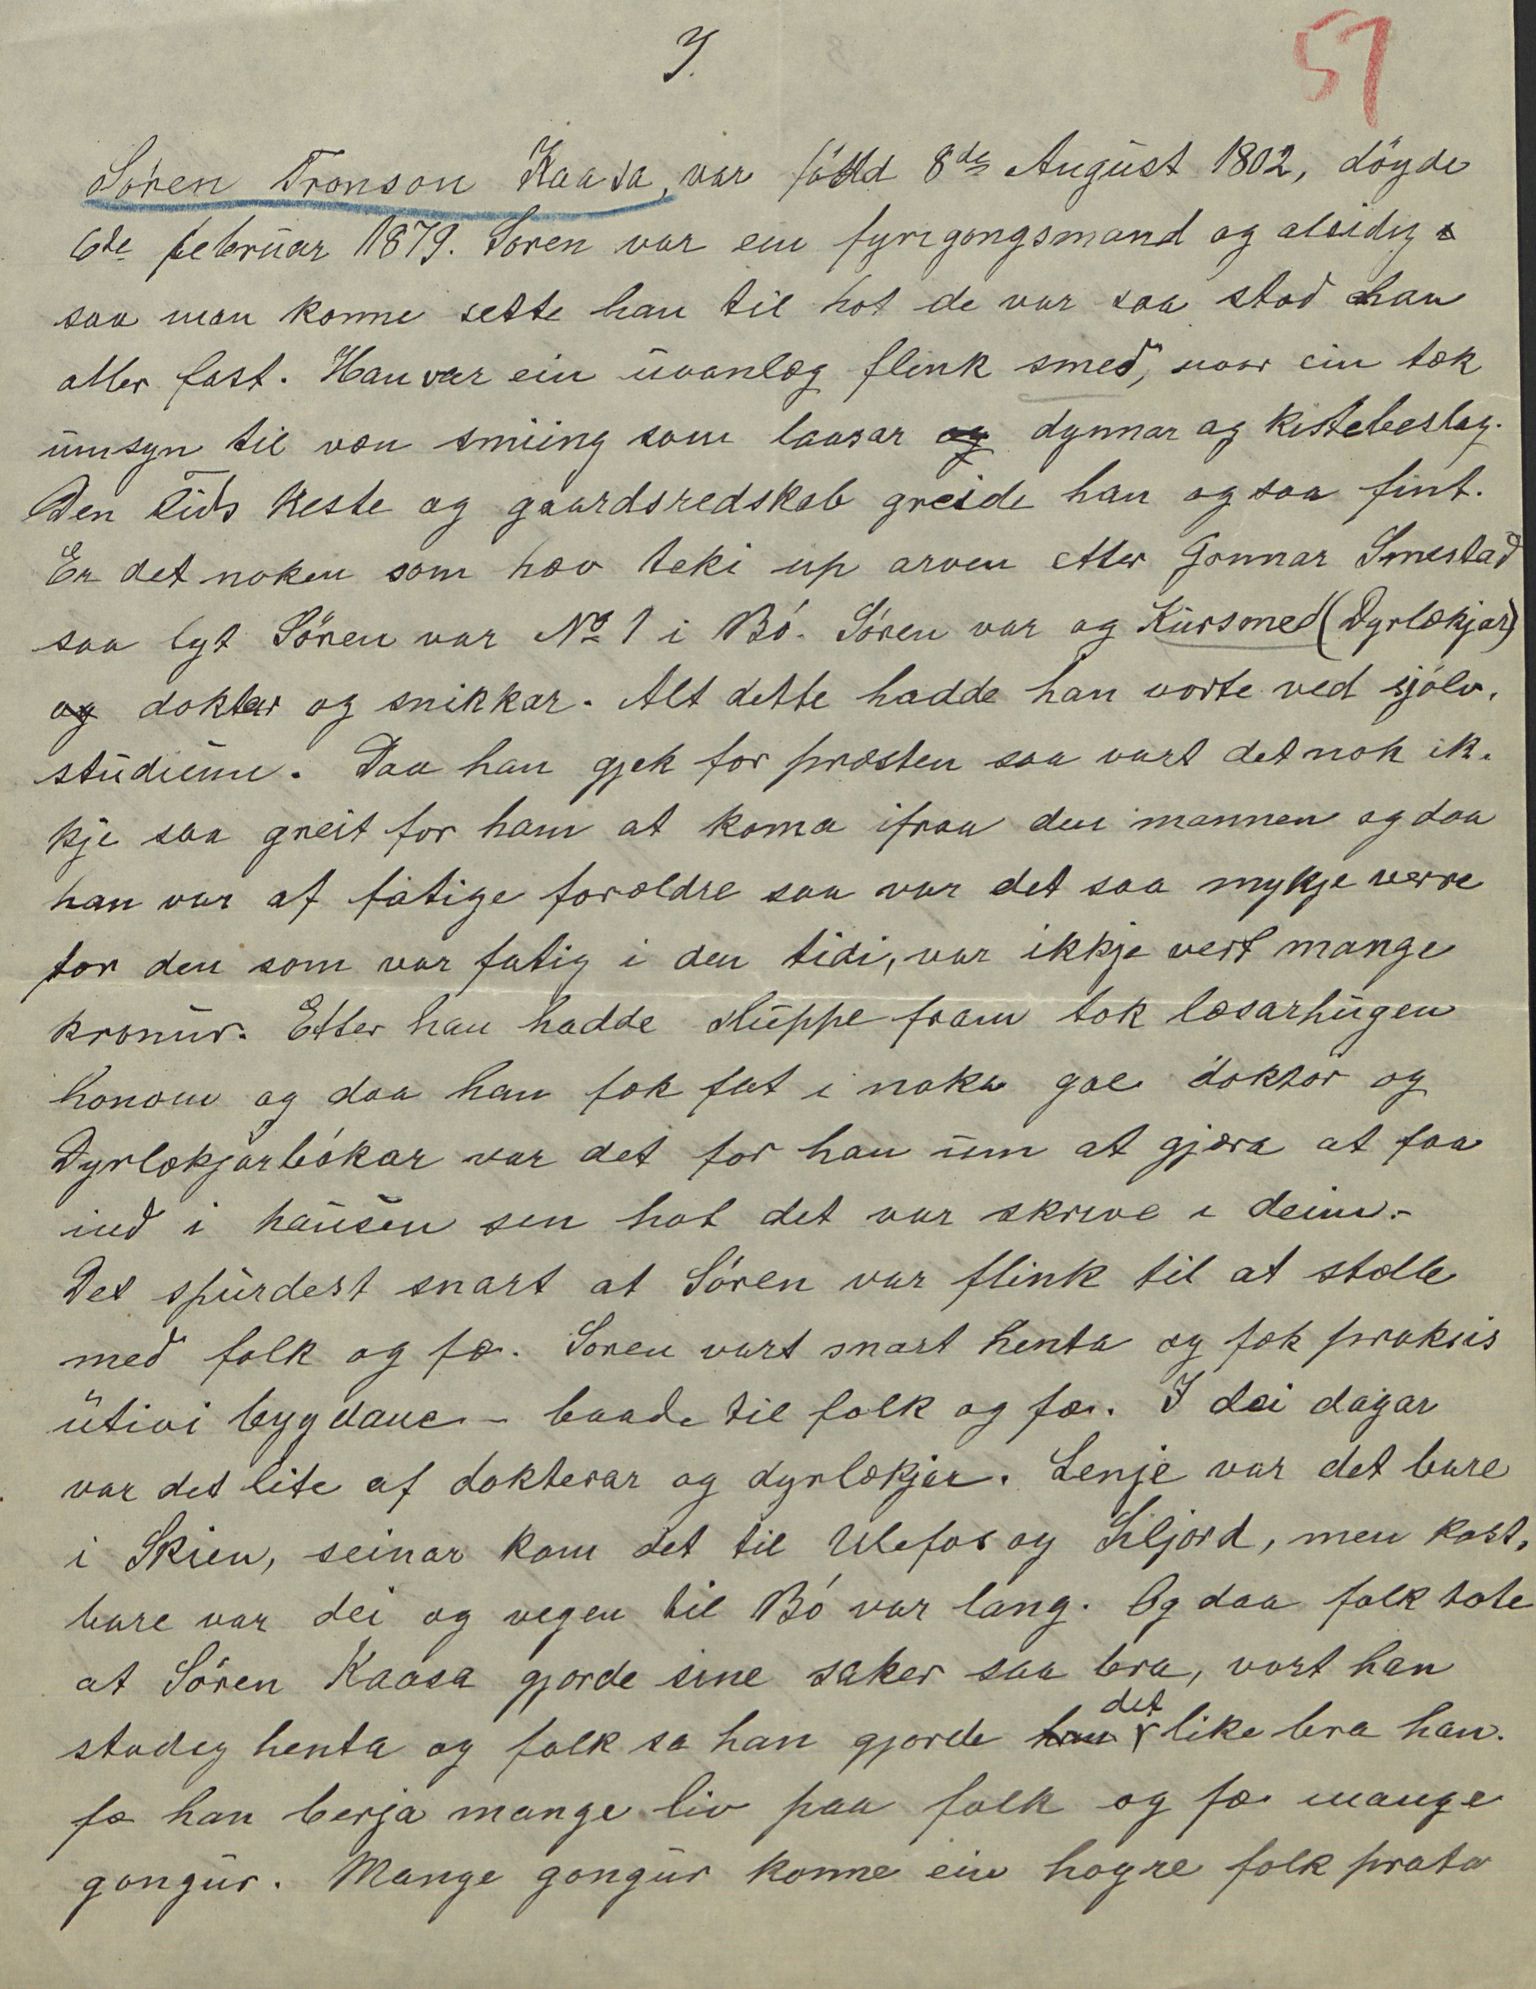 I.
51
Søren Tronson Kaasa, var född 8de August 1802, döyde
6te februar 1879. Søren var ein fyrigongsmand og alsidig
saa man konne sette han til hot de var saa stod han
atter fast. Han var ein uvanleg flink smed, naar ein tek
umsyn til væn smiing som laasar og dynnar og kistebeslag.
Den tids heste og gaardsredskab greide han ogsaa fint.
Er det noken som hæv teki up arven etter Gonnar Smestad
saa lyt Søren var No 1 i Bó. Søren var og Kursmed (Dyrlækjar)
og doktar og snikkar. Alt dette hadde han vorte ved sjölv.
studium. Daa han gjek for præsten saa vart det nok ik.
kje saa greit for ham at koma ifraa den mannen og daa
han var af fatige foræeldre saa var det saa mykje verre
for den som var fatig i den tidi, var ikkje vert mange
kronur. Etter han hadde sluppe fram tok læsarhugen
honom og daa han fek fat i noka gae doktor og
Dyrlækjarbókar var det for han um at gjæra at faa
ind i hausen sen hot det var skreve i deim.-
Det spurdest snart at Søren var flink til at stælle
med folk og fæ. Søren vart snart henta og fek praksis
utivi bygdane - baade til folk og fæ. I dei dagar
var det lite af dokterar og dyrlækjar. Lenje var det bare
i Skien, seinar kom det til Ulefos og Siljord, men kost,
bare var dei og vegen til Bó var lang. Og daa folk tote
at Søren Kaasa gjorde sine saker saa bra, vart han
stadig henta og folk sa han gjorde han det like bra han.
fæ han berja mange liv paa folk og fæ mange
gongur. Mange gongur konne ein høyre folk prata